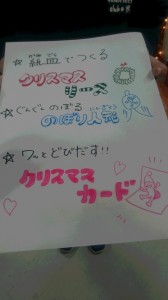 ☆ 紙皿でつくる
かみざら
クリスマス
リース
☆ ぐんぐんのぼる
のぼり人形
にんぎょう
☆ ワッととびだす!!
クリスマス
カード